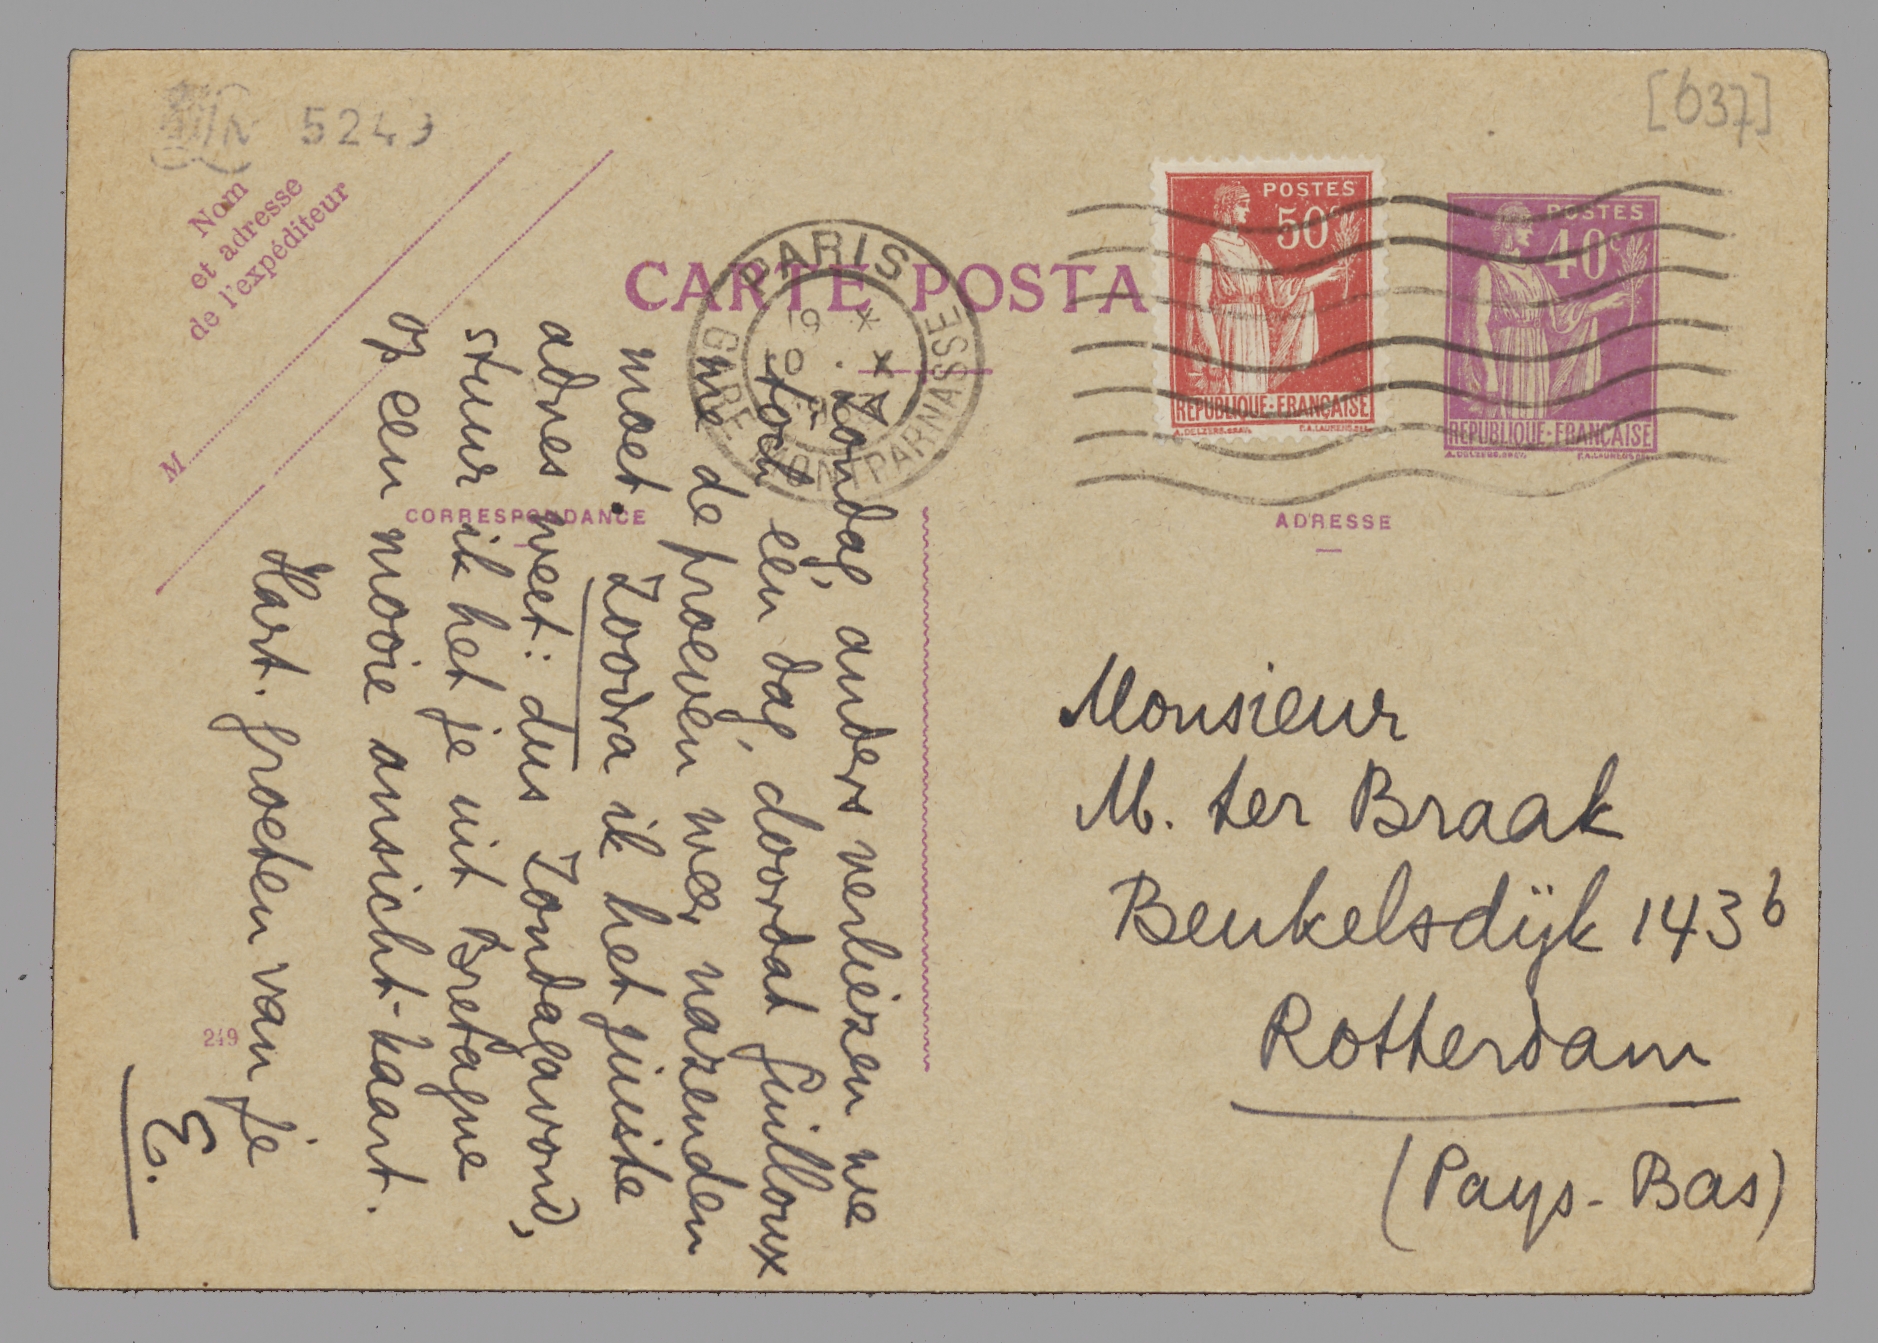 5249
[637]
Nom
et adresse
de l'expéditeur
M
CARTE POSTA
PARIS
GARE MONTPARNASSE
19
POSTES
50c
REPUBLIQUE-FRANÇAISE
POSTES
40c
REPUBLIQUE-FRANÇAISE
CORRESPONDANCE
ADRESSE
Zondag, anders verliezen we
toch één dag, doordat Guilloux
me de proeven weer nazenden
moet. Zoodra ik het juiste
adres weet: dus Zondagavond,
stuur ik het je uit Bretagne
op een mooie ansicht-kaart.
Hart. groeten van je
E.
249
Monsieur
M. ter Braak
Beukelsdijk 143b
Rotterdam
(Pays-Bas)